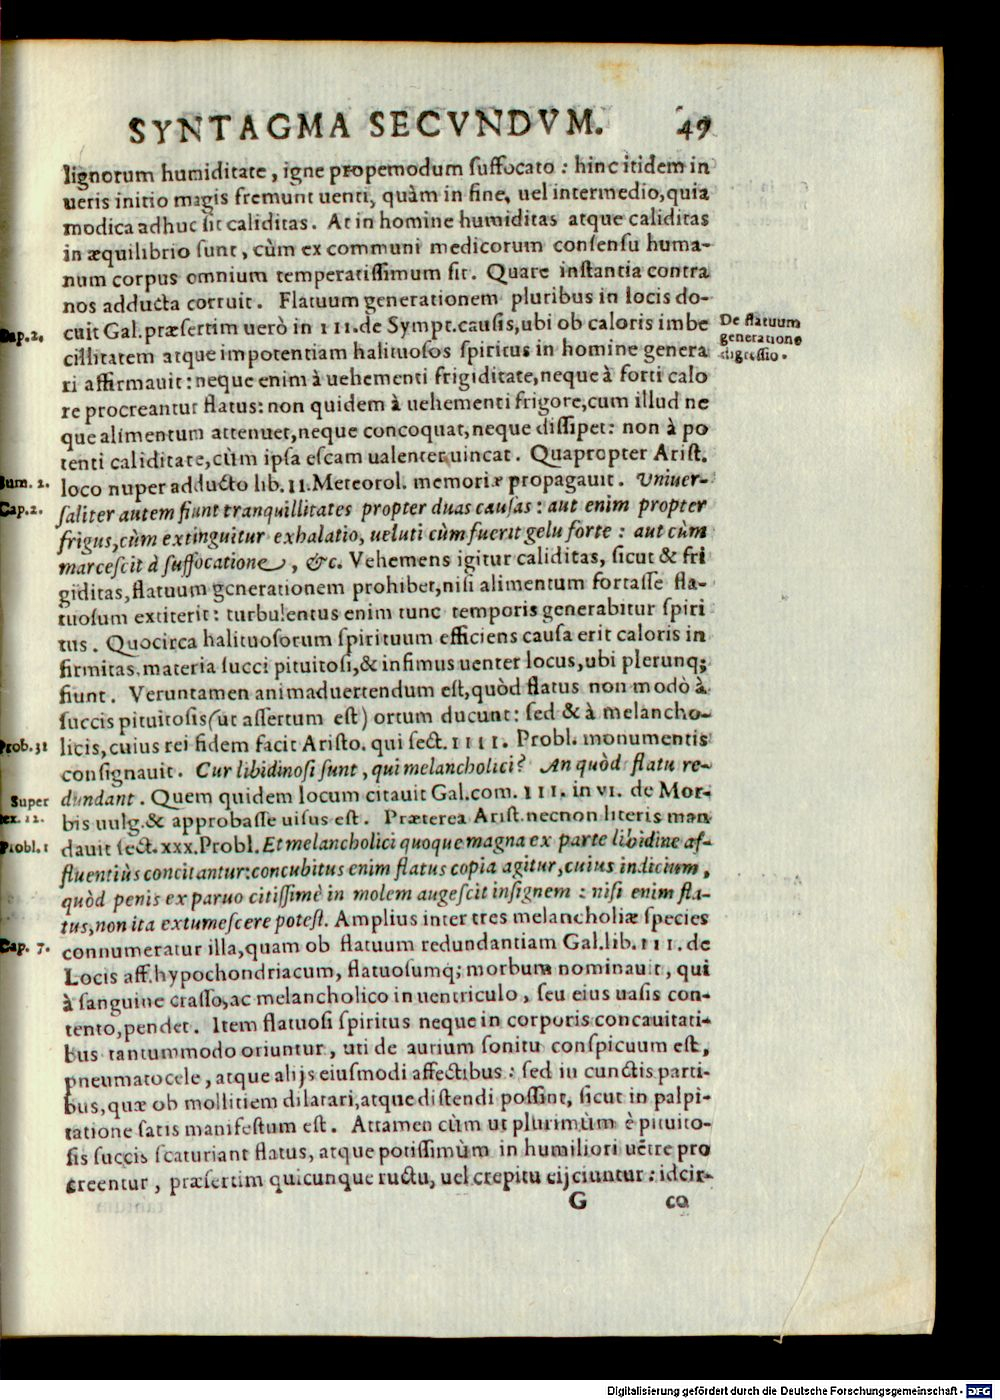 SYNTAGMA SECVNDVM. 49
lignorum humiditate, igne propemodum suffocato: hinc itidem in
ueris initio magis fremunt uenti, quàm in fine, uel intermedio, quia
modica adhuc sit caliditas. At in homine humiditas atque caliditas
in æquilibrio sunt, cùm ex communi medicorum consensu huma-
num corpus omnium temperatissimum sit. Quare instantia contra
nos adducta corruit. Flatuum generationem pluribus in locis do-
cuit Gal. præsertim uerò in III. de Sympt. causis, ubi ob caloris imbe
Cap. 2.
De flatuum
generatione
digressio.
cillitatem atque impotentiam halituosos spiritus in homine genera
ri affirmauit: neque enim à uehementi frigiditate, neque à forti calo
re procreantur flatus: non quidem à uehementi frigore, cum illud ne
que alimentum attenuet, neque concoquat, neque dissipet: non à po
tenti caliditate, cùm ipsa escam ualenter uincat. Quapropter Arist.
Sum. 2.
loco nuper adducto lib. II. Meteorol. memoriæ propagauit. Vniuer-
Cap. 2.
saliter autem fiunt tranquillitates propter duas causas: aut enim propter
frigus, cùm extinguitur exhalatio, ueluti cùm fuerit gelu forte: aut cùm
marcescit à suffocatione, &c. Vehemens igitur caliditas, sicut & fri
giditas, flatuum generationem prohibet, nisi alimentum fortasse fla-
tuosum extiterit: turbulentus enim tunc temporis generabitur spiri
tus. Quocirca halituosorum spirituum efficiens causa erit caloris in
firmitas, materia succi pituitosi, & infimus uenter locus, ubi plerunq;
fiunt. Veruntamen animaduertendum est, quòd flatus non modò à
succis pituitosis (ut assertum est) ortum ducunt: sed & à melancho-
Prob. 31
licis, cuius rei fidem facit Aristo. qui sect. IIII. Probl. monumentis
consignauit. Cur libidinosi sunt, qui melancholici? An quòd flatu re-
Super
dundant. Quem quidem locum citauit Gal. com. III. in VI. de Mor-
tex. 12.
bis uulg. & approbasse uisus est. Præterea Arist. necnon literis man
Probl. 1
dauit sect. xxx. Probl. Et melancholici quoque magna ex parte libidine af-
fluentiùs concitantur: concubitus enim flatus copia agitur, cuius indicium,
quòd penis ex paruo citissimè in molem augescit insignem: nisi enim fla-
tus, non ita extumescere potest. Amplius inter tres melancholiæ species
Cap. 7.
connumeratur illa, quam ob flatuum redundantiam Gal. lib. III. de
Locis aff. hypochondriacum, flatuosumq; morbum nominauit, qui
à sanguine crasso, ac melancholico in uentriculo, seu eius uasis con-
tento, pendet. Item flatuosi spiritus neque in corporis concauitati-
bus tantummodo oriuntur, uti de aurium sonitu conspicuum est,
pneumatocele, atque alijs eiusmodi affectibus: sed in cunctis parti-
bus, quæ ob mollitiem dilatari, atque distendi possint, sicut in palpi-
tatione satis manifestum est. Attamen cùm ut plurimùm è pituito-
sis succis scaturiant flatus, atque potissimùm in humiliori uẽtre pro
creentur, præsertim quicunque ructu, uel crepitu eijciuntur: idcir-
G co
Digitalisierung gefördert durch die Deutsche Forschungsgemeinschaft - DFG